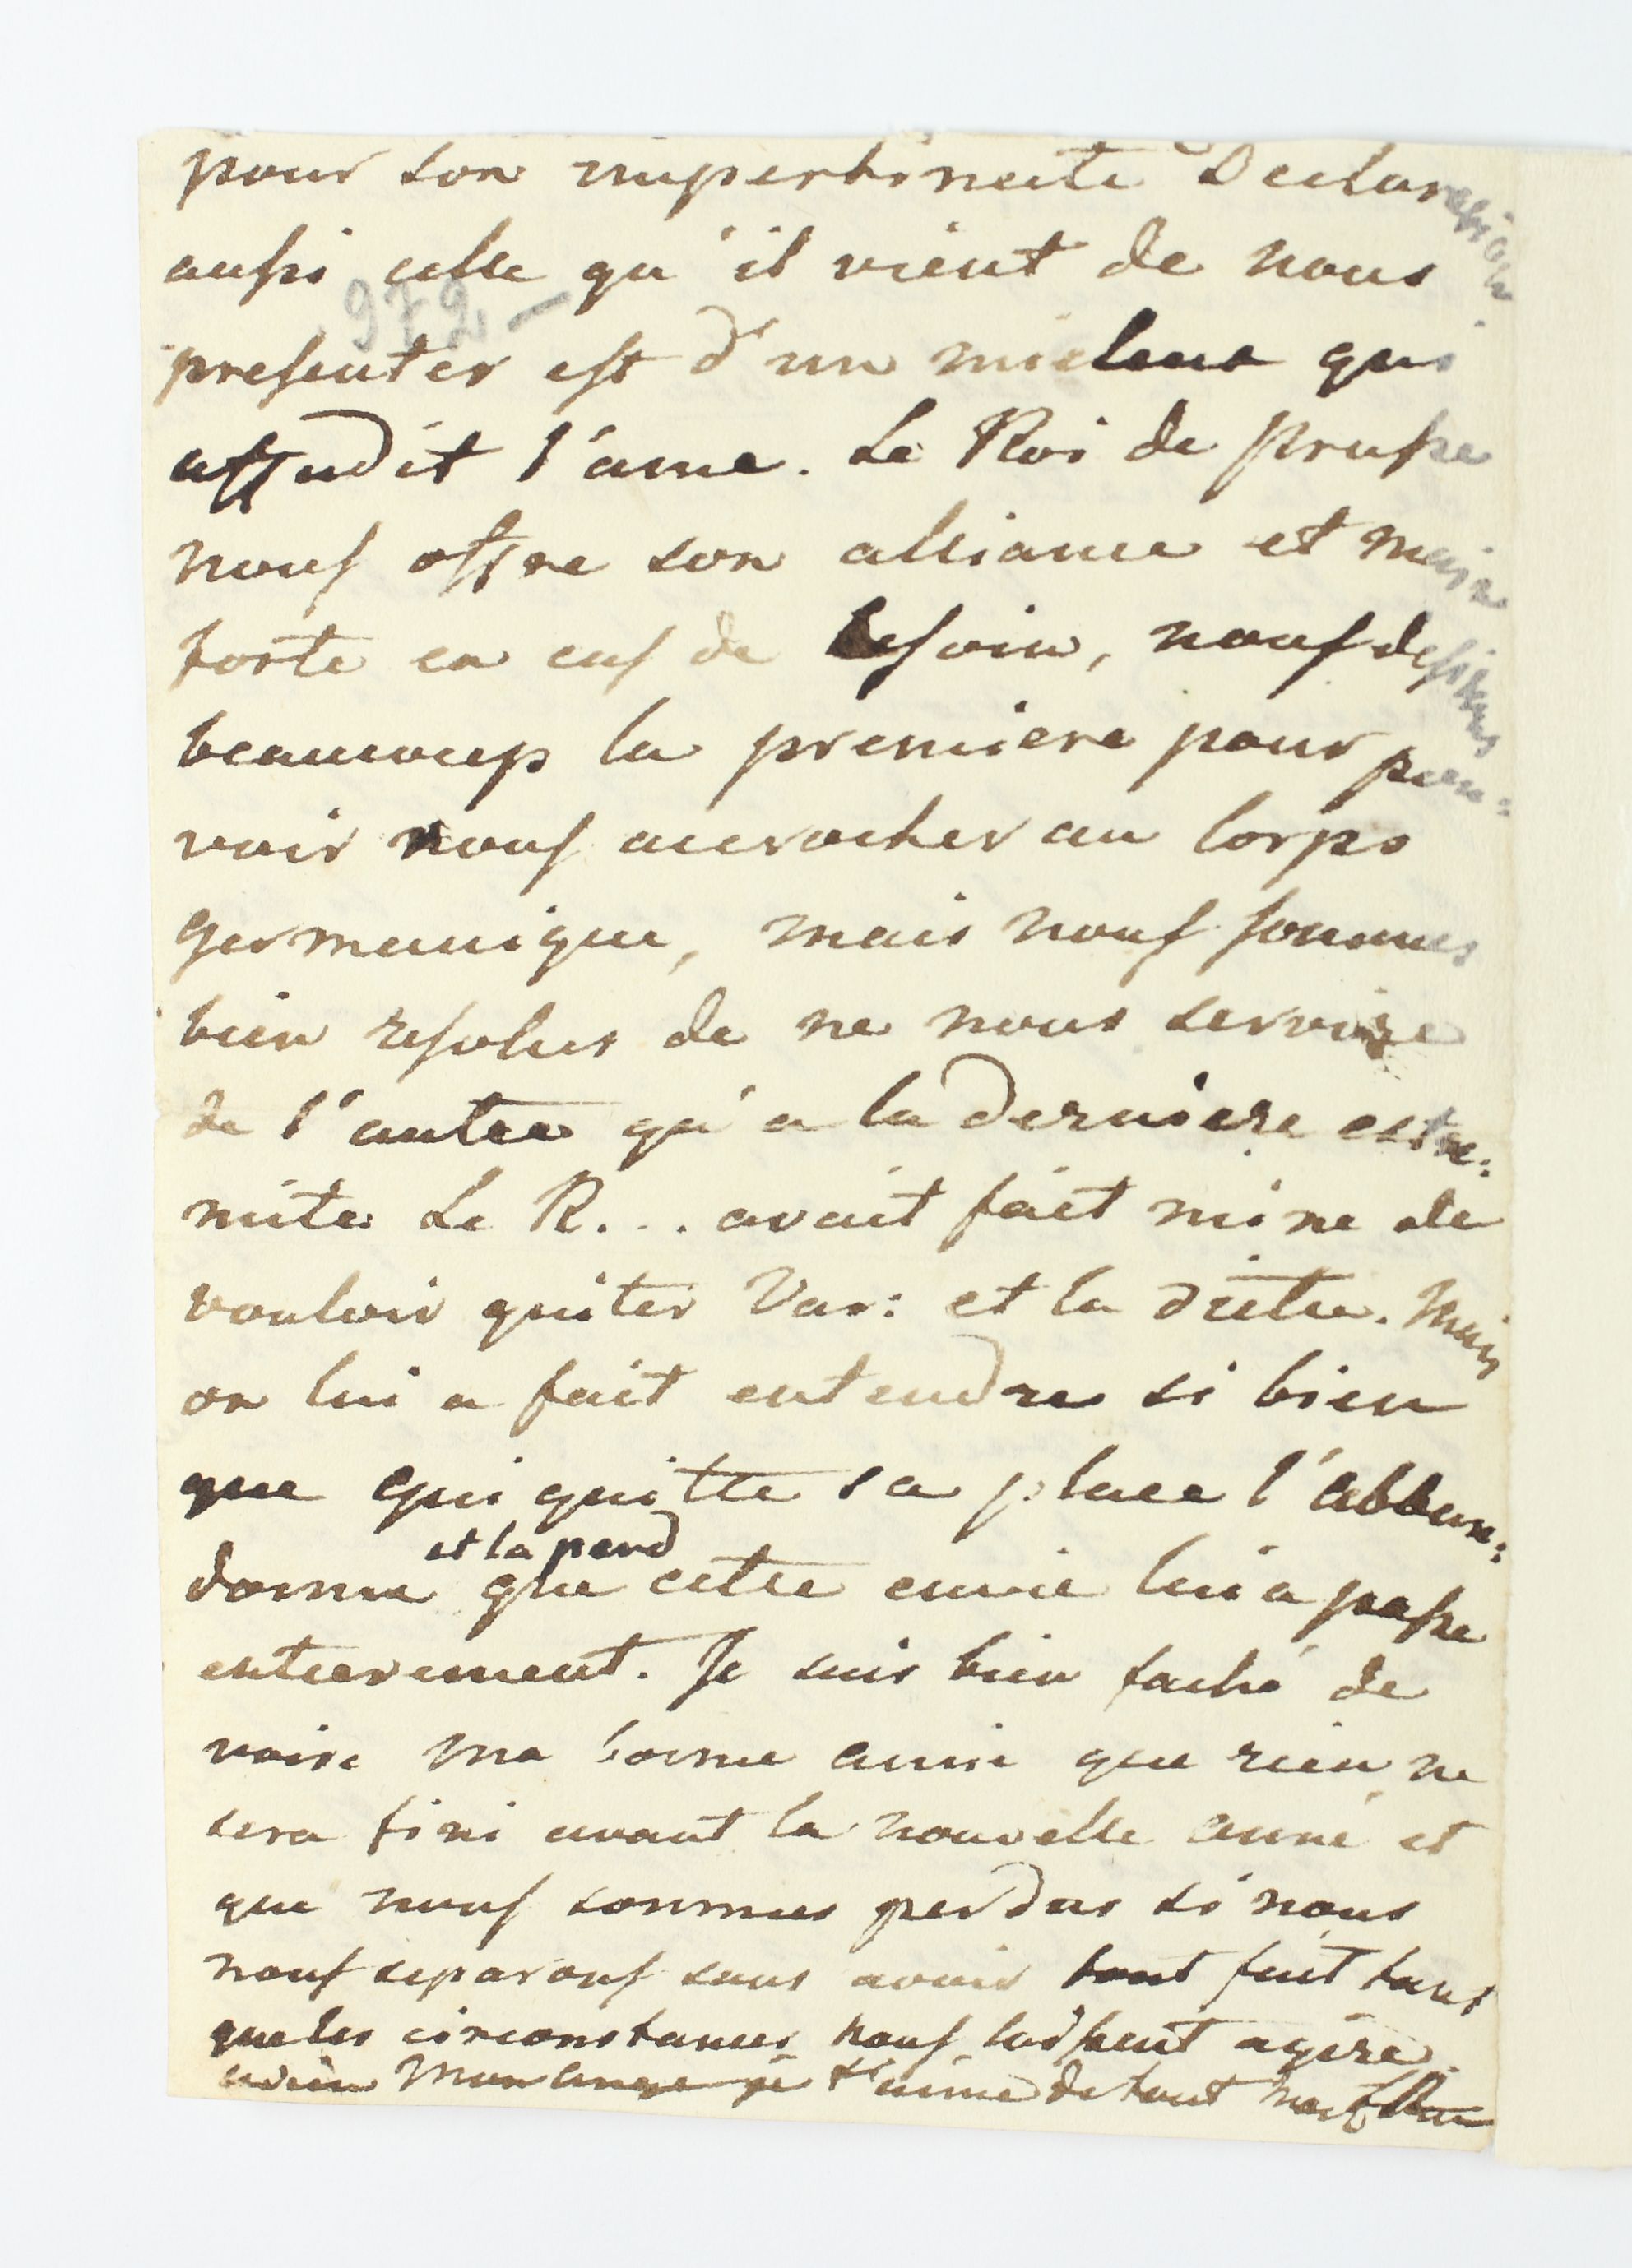 pour son impertinente Declaration
aussi celle qu'il vient de nous
972.–
presenter est d'un mieleux qui
affadit l'ame. Le Roi de prusse
nous offre son alliance et main
forte en cas de besoin, nous desirons
beaucoup la premiere pour pou:
voir nous accrocher au Corps
germanique, mais nous sommes
bien resolus de ne nous servire
de l'autre qu'a la derniere extre:
mite. Le R... avait fait mine de
vouloir quiter Var: et la diette. Mais
on lui a fait entendre si bien
que qui quitte sa place l'abban:
et la perd
donne que cette envie lui a passe
entierement. Je suis bien faché de
voire ma bonne amie que rien ne
sera fini avant la nouvelle anné et
que nous sommes perdus si nous
nous separons sans avoir tout fait tant
que les circonstances nous laissent agire.
adieu Mon ange je t'aime de tout